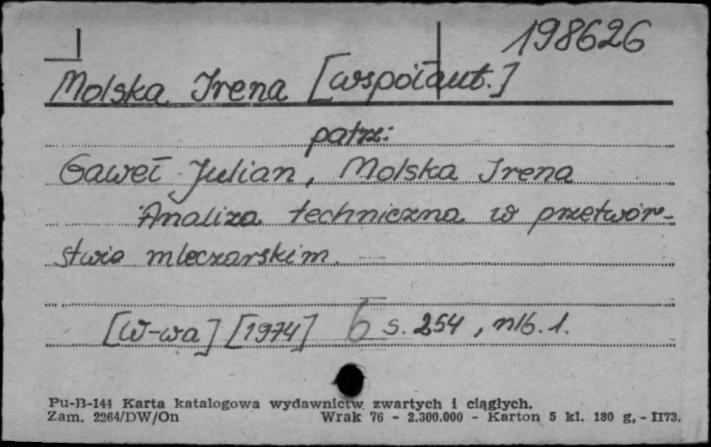 198626
Molska Irena [współaut.]
patrz:
Gaweł Julian, Molska Irena
Analiza techniczna w przetwór-
stwie mleczarskim.
[W-wa] [1974] 6 s. 254, nlb. 1.
Pu-B-144 Karta katalogowa wydawnictw zwartych i ciągłych.
Zam. 2264/DW/On Wrak 76 - 2.300.000 - Karton 5 kl. 180 g, - II73.